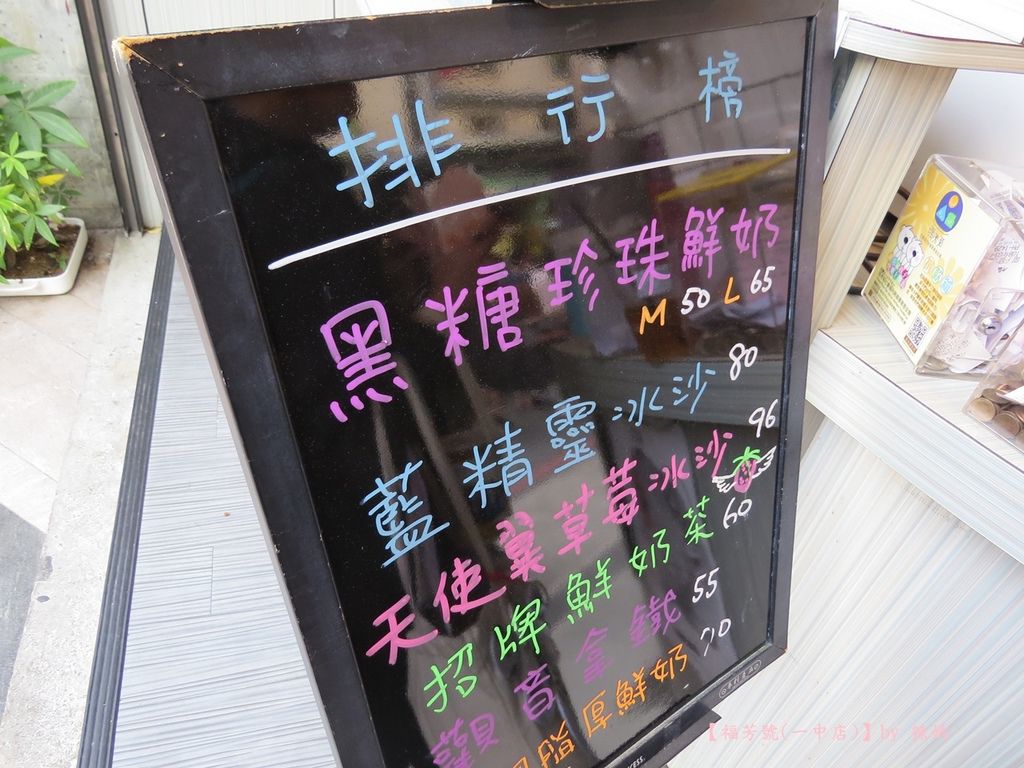 排行榜
黑糖珍珠鮮奶
M 50 L 65
藍精靈冰沙 80
天使翼草莓冰沙 96
招牌鮮奶茶 60
觀音拿鐵 55
厚鮮奶 70
【福芳號(一中店)】by